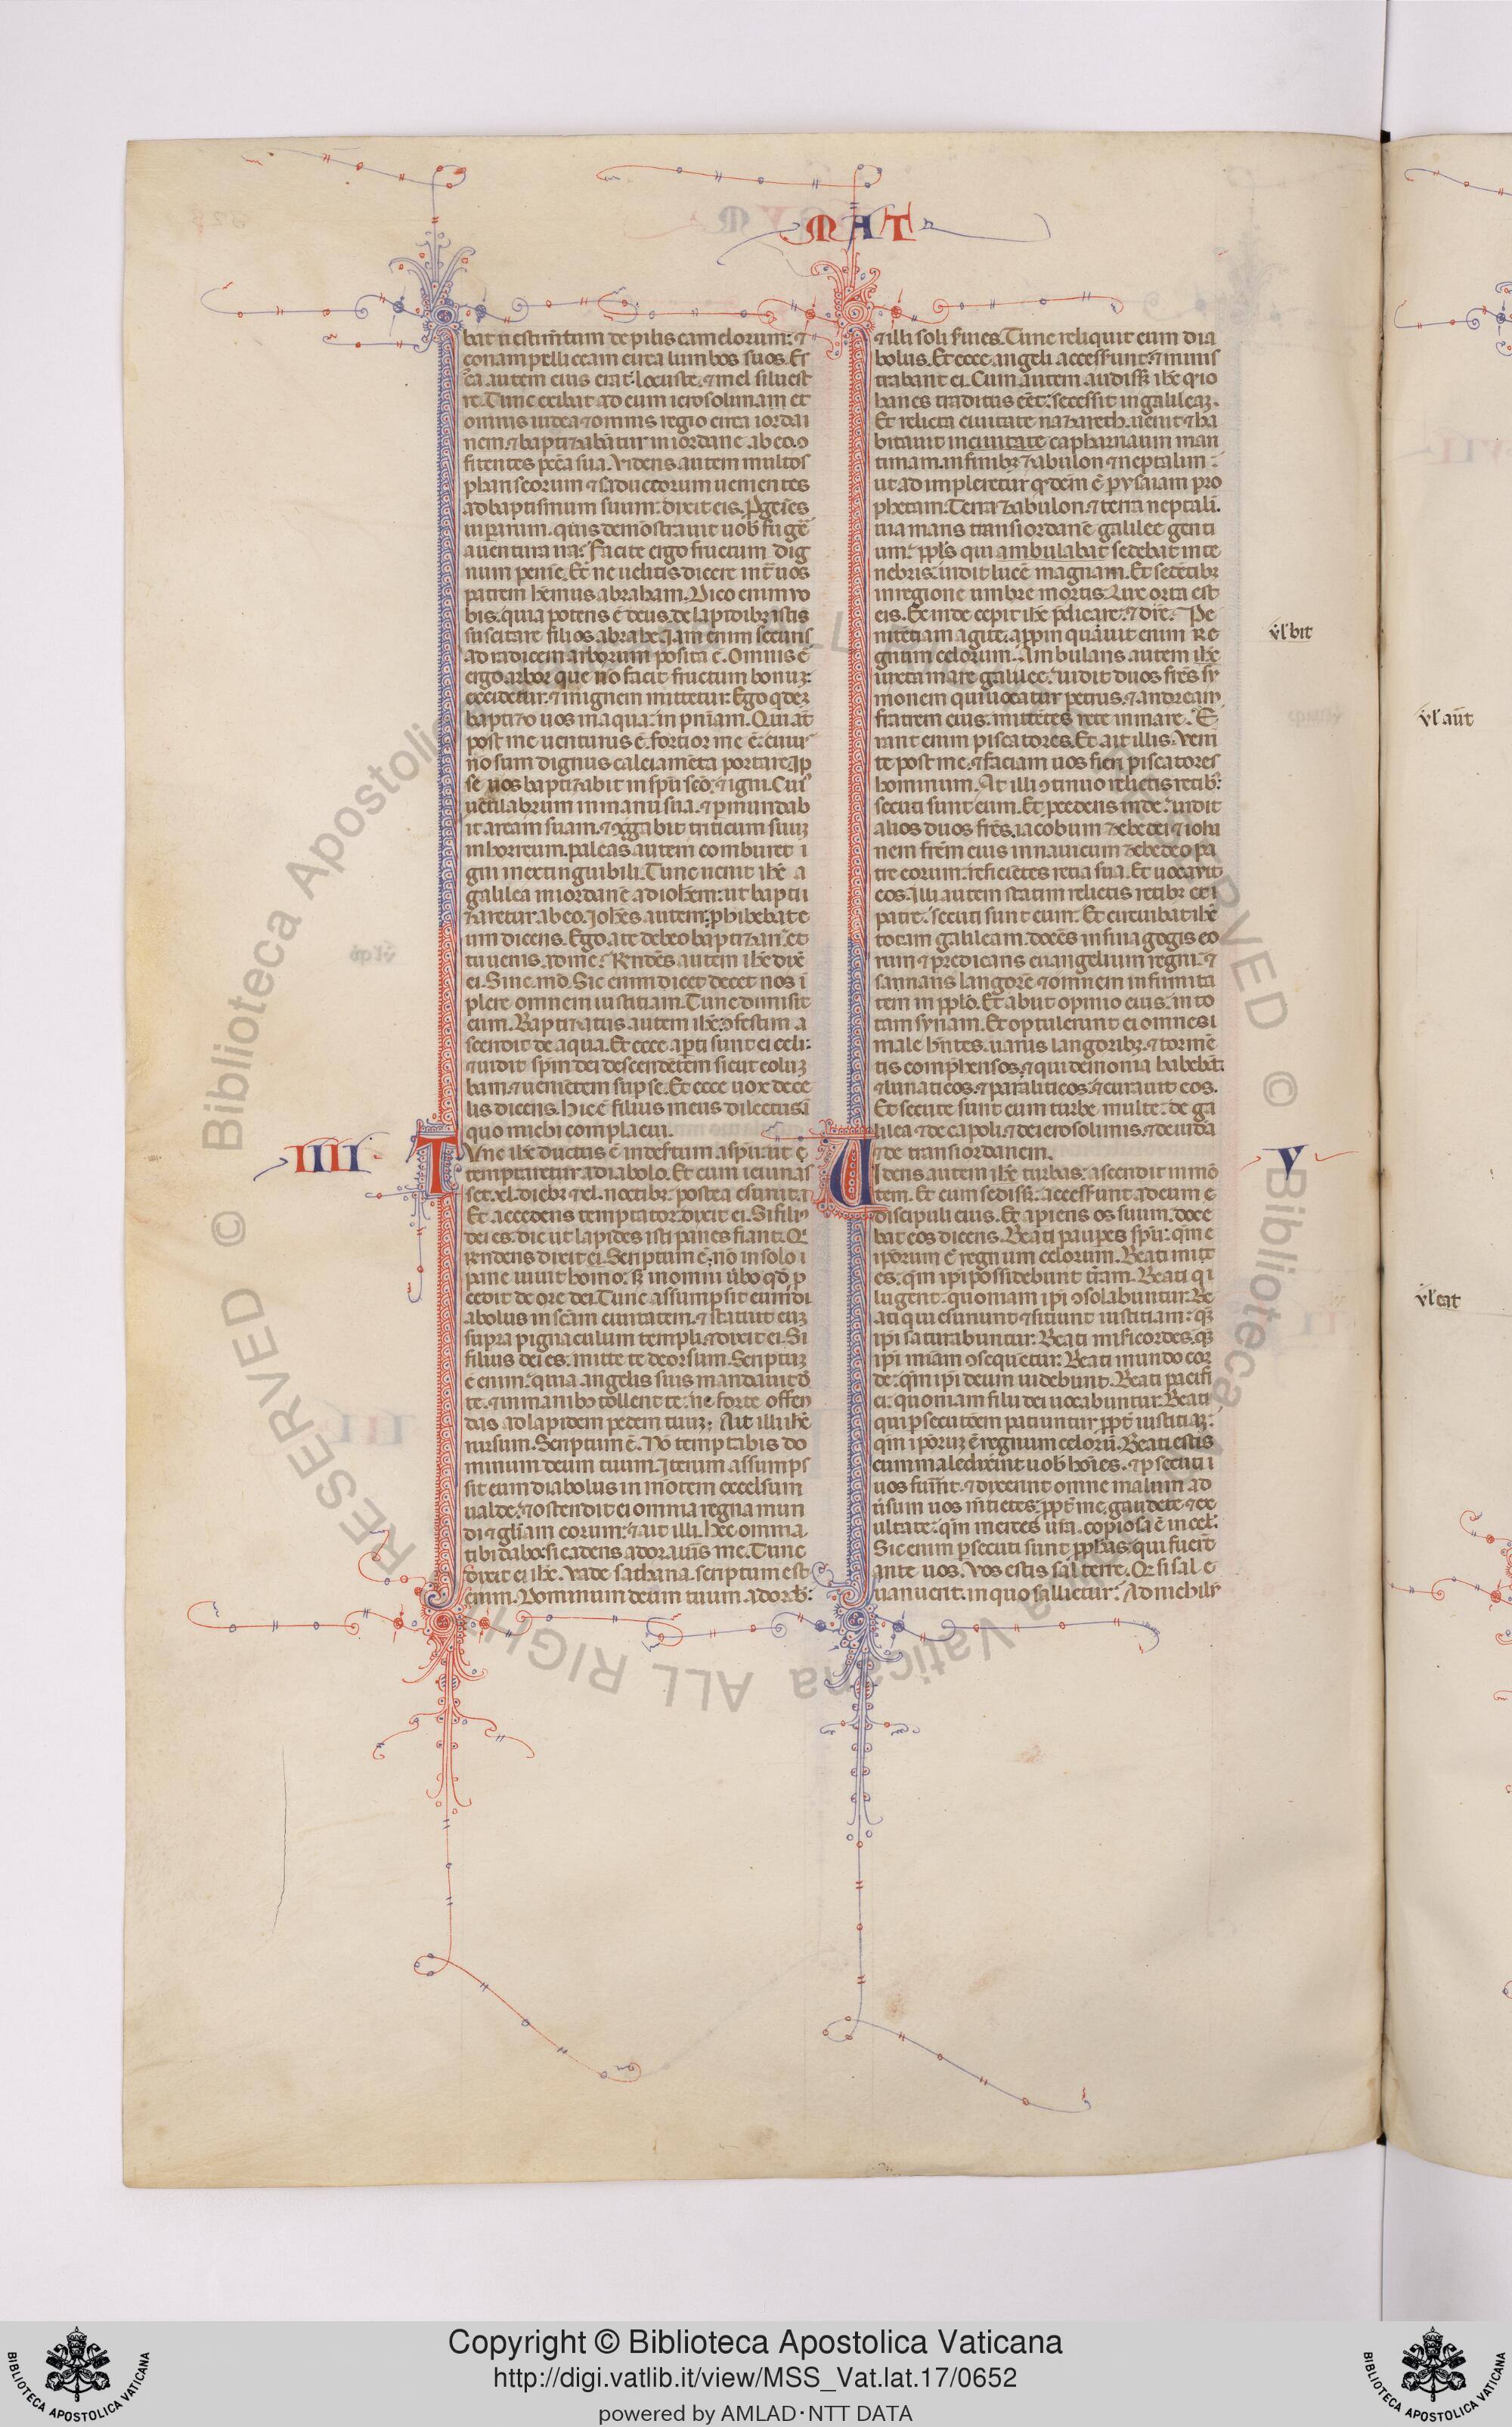 MAT
bat uestim̄tum de pilis camelorum: ⁊
çonam pelliceam circa lumbos suos. Es
ca autem eius erat: locuste. ⁊ mel siluest
re. Tunc exibat ad eum ierosolimam et
omnis iudea ⁊ omnis regio circa iordai
nem. ⁊ baptiçabātur in iordane ab eo. ꝯ
fitentes pcc̄a sua. Videns autem multos
phariseorum ⁊ saduceorum uenientes
ad baptismum suum: dixit eis. Pgeīes
uiperarum. quis demōstrauit uob̄ fugē
a uentura ira? Facite ergo fructum dig
num penīe. Et ne uelitis dicere int̄ uos
patrem hēmus abraham. Dico enim vo
bis. quia potens ē deus. de lapidibꝫ istis
suscitare filios abrahe. Jam enim securis
ad radicem arborum posita ē. Omnis ē
ergo arbor que nō facit fructum bonuꝫ:
excidetur. ⁊ in ignem mittetur. Ego qͥdeꝫ
baptiço uos in aqua: in pn̄iam. Qui aūt
post me uenturus ē. fortior me ē: cuius
nō sum dignus calciamēta portare. Jp
se uos baptiçabit in sp̄u sc̄o. ⁊ igni. Cuiꝰ
uētilabrum in manu sua. ⁊ pmundab
it aream suam. ⁊ ꝯgͤgabit triticum suuꝫ
in horreum. paleas autem comburet i
gni inextinguibili. Tunc uenit ih̄c a
galilea in iordanē ad ioh̄em: ut bapti
çaretur ab eo. Joh̄es autem: phibebat e
um dicens. Ego a te debeo baptiçari. et
tu uenis ad me? Rn̄dēs autem ih̄c dix̄
ei. Sine mō. Sic enim dicet decet nos ī
plere omnem iustitiam. Tunc dimisit
eum. Baptiçatus autem ih̄c: ꝯfestim a
scendit de aqua. Et ecce apti sunt ei celi:
⁊ uidit sp̄m dei descendētem sicut coluꝫ
bam. ⁊ uenietem sup se. Et ecce uox de ce
lis dicens. Hic ē filius meus dilectus ī
quo michi complacui.
IIII
Tunc ih̄c ductus ē in desertum a sp̄u: ut ē
temptaretur a diabolo. Et cum ieiunas
set. xl. diebꝫ ⁊ xl. noctibꝫ: postea esuriit.
Et accedens temptator: dixit ei. Si filiꝰ
dei es. dic ut lapides isti panes fiant. Q
Rn̄dens dixit ei. Scriptum ē. nō in solo ī
pane uiuit homo: sꝫ in omni ūbo qd̄ p
cedit de ore dei. Tunc assumpsit eum di
abolus in sc̄am ciuitatem. ⁊ statuit euꝫ
supra pignaculum templi. ⁊ dixit ei. Si
filius dei es: mitte te deorsum. Scriptuꝫ
ē enim: quia angelis suis mandauit d̄
te. ⁊ in manibꝫ tollent te: ne forte offen
das ad lapidem pedem tuuꝫ. Ait illi ih̄c
rursum. Scriptum ē. Nō temptabis do
minum deum tuum. Iterum assumps
sit eum diabolus in mōtem excelsum
ualde: ⁊ ostendit ei omnia regna mun
di ⁊ gl̄iam eorum: ⁊ ait illi. hec omnia
tibi dabo: si cadens adoraueris me. Tunc
dixit ei ih̄c. Vade sathana. scriptum est
enim. Dominum deum tuum adorab̄:
⁊ illi soli suies. Tunc reliquit eum dia
bolus. Et ecce angeli accesserunt: ⁊ minis
trabant ei. Cum autem audissꝫ ih̄c ꝙ io
hanes traditus eēt: secessit in galileaꝫ.
Et relicta ciuitate naçareth. uenit ⁊ ha
bitauit in ciuitate capharnaum mari
timam. in finibꝫ çabulon ⁊ neptalim:
ut adimpleretur qd̄ dc̄m ē p ysaiam pro
phetam. Terra çabulon. ⁊ terra neptalī.
uia maris transiordanē galilee genti
um: ppl̄s qui ambulabat sedebat in te
nebris. uidit lucē magnam. Et sedētibꝫ
in regione umbre mortis: lux orta est
eis. Exinde cepit ih̄c p̄dicare. ⁊ dīre. Pe
nitētiam agite. appinquauit enim re
gnum celorum. Ambulans autem ih̄c
iuxta mare galilee. uidit duos frēs sy
monem qui uocatur petrus. ⁊ andream
fratrem eius. mittētes rete in mare. E
rant enim piscatores. Et ait illis. Veni
te post me. ⁊ faciam uos fieri piscatores
hominum. At illi ꝯtinuo relictis retibꝫ:
secuti sunt eum. Et pcedens inde. uidit
alios duos frēs. iacobum çebedei ⁊ ioha
nem frēm eius in nauicum çebedeo pa
tre eorum. reficiētes retia sua. Et uocauit
eos. Illi autem statim relictis retibꝫ et i
patre. secuti sunt eum. Et circuibat ih̄c
totam galileam. docēs in sinagogis eo
rum ⁊ predicans euangelium regni. ⁊
sannans langorē ⁊ omnem infirmita
tem in pplō. Et abiit opinio eius. in to
tam syriam. Et optulerunt ei omnes i
male hn̄tes. uariis langoribꝫ. ⁊ tormē
tis comphensos. ⁊ qui demonia habebāt
⁊ lunaticos. ⁊ paraliticos. ⁊ curauit eos.
Et secute sunt eum turbe multe. de ga
lilea ⁊ decapoli. ⁊ de ierosolimis. ⁊ de iudea
⁊ de transiordanem.
V
Uidens autem ih̄c turbas: ascendit in mō
tem. Et cum sedissꝫ. accesserunt ad eum ē
discipuli eius. Et apiens os suum. doce
bat eos dicens. Beati paupes sp̄u: qm̄ ē
ipōrum ē regnum celorum. Beati mitt
es. qm̄ ipi possidebunt tr̄am. Beati qi
lugent: quoniam ipi ꝯsolabuntur. Be
ati qui esuriunt ⁊ sitiunt iustitiam: qꝫ
ipi saturabuntur. Beati misicordes. qꝫ
ipi miām ꝯsequētur. Beati mundo cor
de: qm̄ ipi deum uidebunt. Beati pacifi
ci: quoniam filii dei uocabuntur. Beati
qui psecutōem patiuntur ppt̄ iustitiaꝫ:
qm̄ ipōruꝫ ē regnum celorū. Beati estis
cum maledixerint uob̄ hoīes. ⁊ psecuti i
uos fuerint. ⁊ dixerint omne malum ad
uersum uos mētietes. ppt̄ me. gaudete ⁊ ex
ultate: qm̄ merces ura. copiosa ē in cel:
Sic enim psecuti sunt pph̄as. qui fuerūt
ante uos. Vos estis sal terre. Qꝫ si sal e
uanuerit. in quo sallietur? Ad nichilꝫ
vl̄ bit
vl̄ aūt
vl̄ erit
Copyright © Biblioteca Apostolica Vaticana
http://digi.vatlib.it/view/MSS_Vat.lat.17/0652
powered by AMLAD·NTT DATA
BIBLIOTECA APOSTOLICA VATICANA
BIBLIOTECA APOSTOLICA VATICANA
© Biblioteca Apostolica Vaticana ALL RIGHTS RESERVED